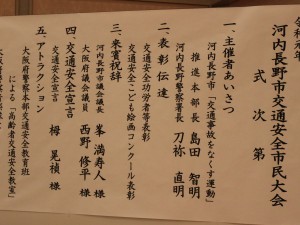 令和元年
河内長野市交通安全市民大会
式次第
一．主催者あいさつ
河内長野市「交通事故をなくす運動」
推進本部長 島田 智明
河内長野警察署長 刀祢 直明
二．表彰伝達
交通安全功労者等表彰
交通安全こども絵画コンクール表彰
三．来賓祝辞
河内長野市議会議長 峯 満寿人 様
大阪府議会議員 西野 修平 様
四．交通安全宣言
交通安全宣言 栂 晃槙 様
五．アトラクション
大阪府警察本部交通安全教育班
による「高齢者交通安全教室」